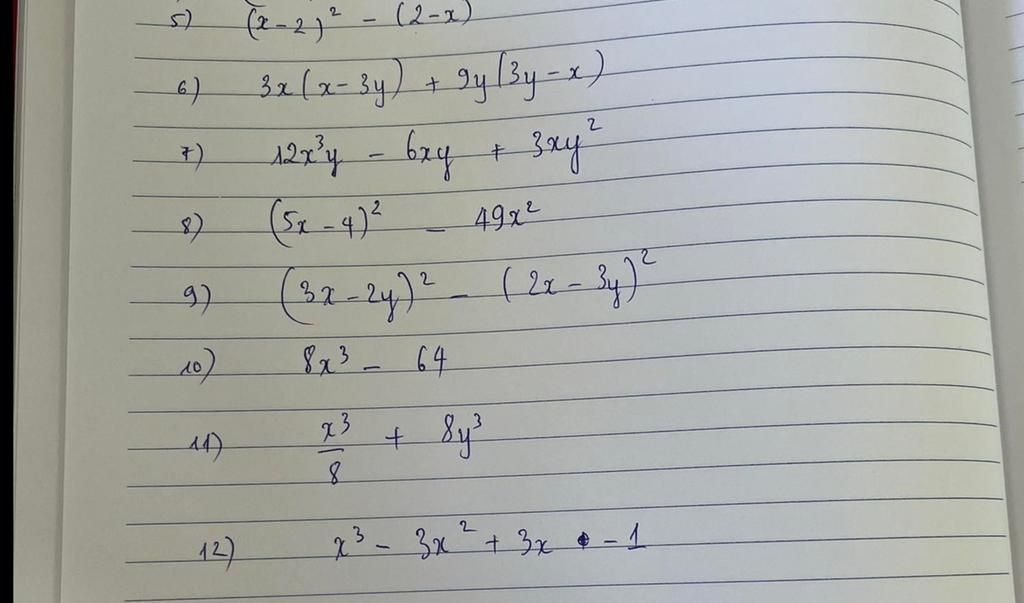 5) (x-2)² - (2-x)
6) 3x(x-3y) + 9y(3y-x)
7) 12x³y - 6xy + 3xy²
8) (5x-4)² - 49x²
9) (3x-2y)² - (2x-3y)²
10) 8x³ - 64
11) x³/8 + 8y³
12) x³ - 3x² + 3x - 1